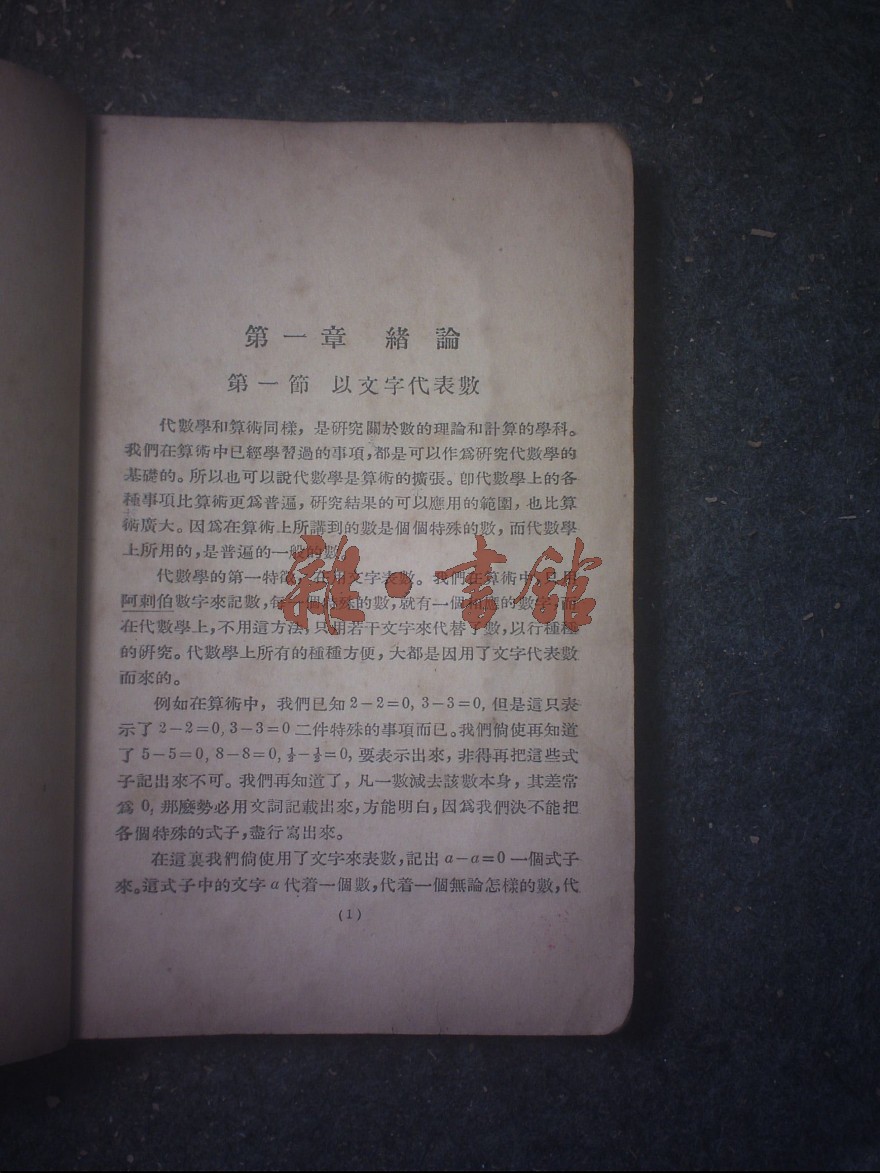 第一章 緒論
第一節 以文字代表數
代數學和算術同樣，是研究關於數的理論和計算的學科。
我們在算術中已經學習過的事項，都是可以作爲研究代數學的
基礎的。所以也可以說代數學是算術的擴張。卽代數學上的各
種事項比算術更爲普遍，研究結果的可以應用的範圍，也比算
術廣大。因爲在算術上所講到的數是個個特殊的數，而代數學
上所用的，是普遍的一般的數。
代數學的第一特徵，在用文字表數。我們在算術中，只用
阿剌伯數字來記數，每一個特殊的數，就有一個相應的數字，而
在代數學上，不用這方法，只用若干文字來代替了數，以行種種
的研究。代數學上所有的種種方便，大都是因用了文字代表數
而來的。
例如在算術中，我們已知 2－2＝0, 3－3＝0, 但是這只表
示了 2－2＝0, 3－3＝0 二件特殊的事項而已。我們倘使再知道
了 5－5＝0, 8－8＝0, ½－½＝0, 要表示出來，非得再把這些式
子記出來不可。我們再知道了，凡一數減去該數本身，其差常
爲 0, 那麼勢必用文詞記載出來，方能明白，因爲我們決不能把
各個特殊的式子，盡行寫出來。
在這裏我們倘使用了文字來表數，記出 a－a＝0 一個式子
來。這式子中的文字 a 代着一個數，代着一個無論怎樣的數，代
(1)
雜·書館